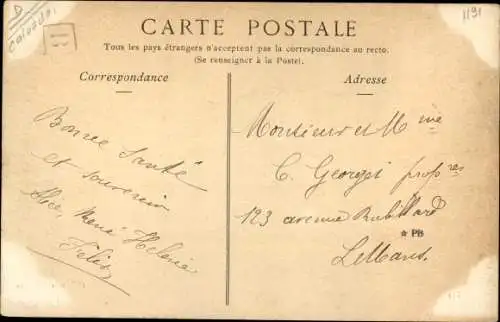 D
Calvados
B
1191
CARTE POSTALE
Tous les pays étrangers n'acceptent pas la correspondance au recto.
(Se renseigner à la Poste).
Correspondance
Bonne Santé
et souvenir
Alice, Mené, Hélène
Félix
Adresse
Monsieur et Mme
C. Georget profres
123 avenue Rubillard
Le Mans.
★ PB